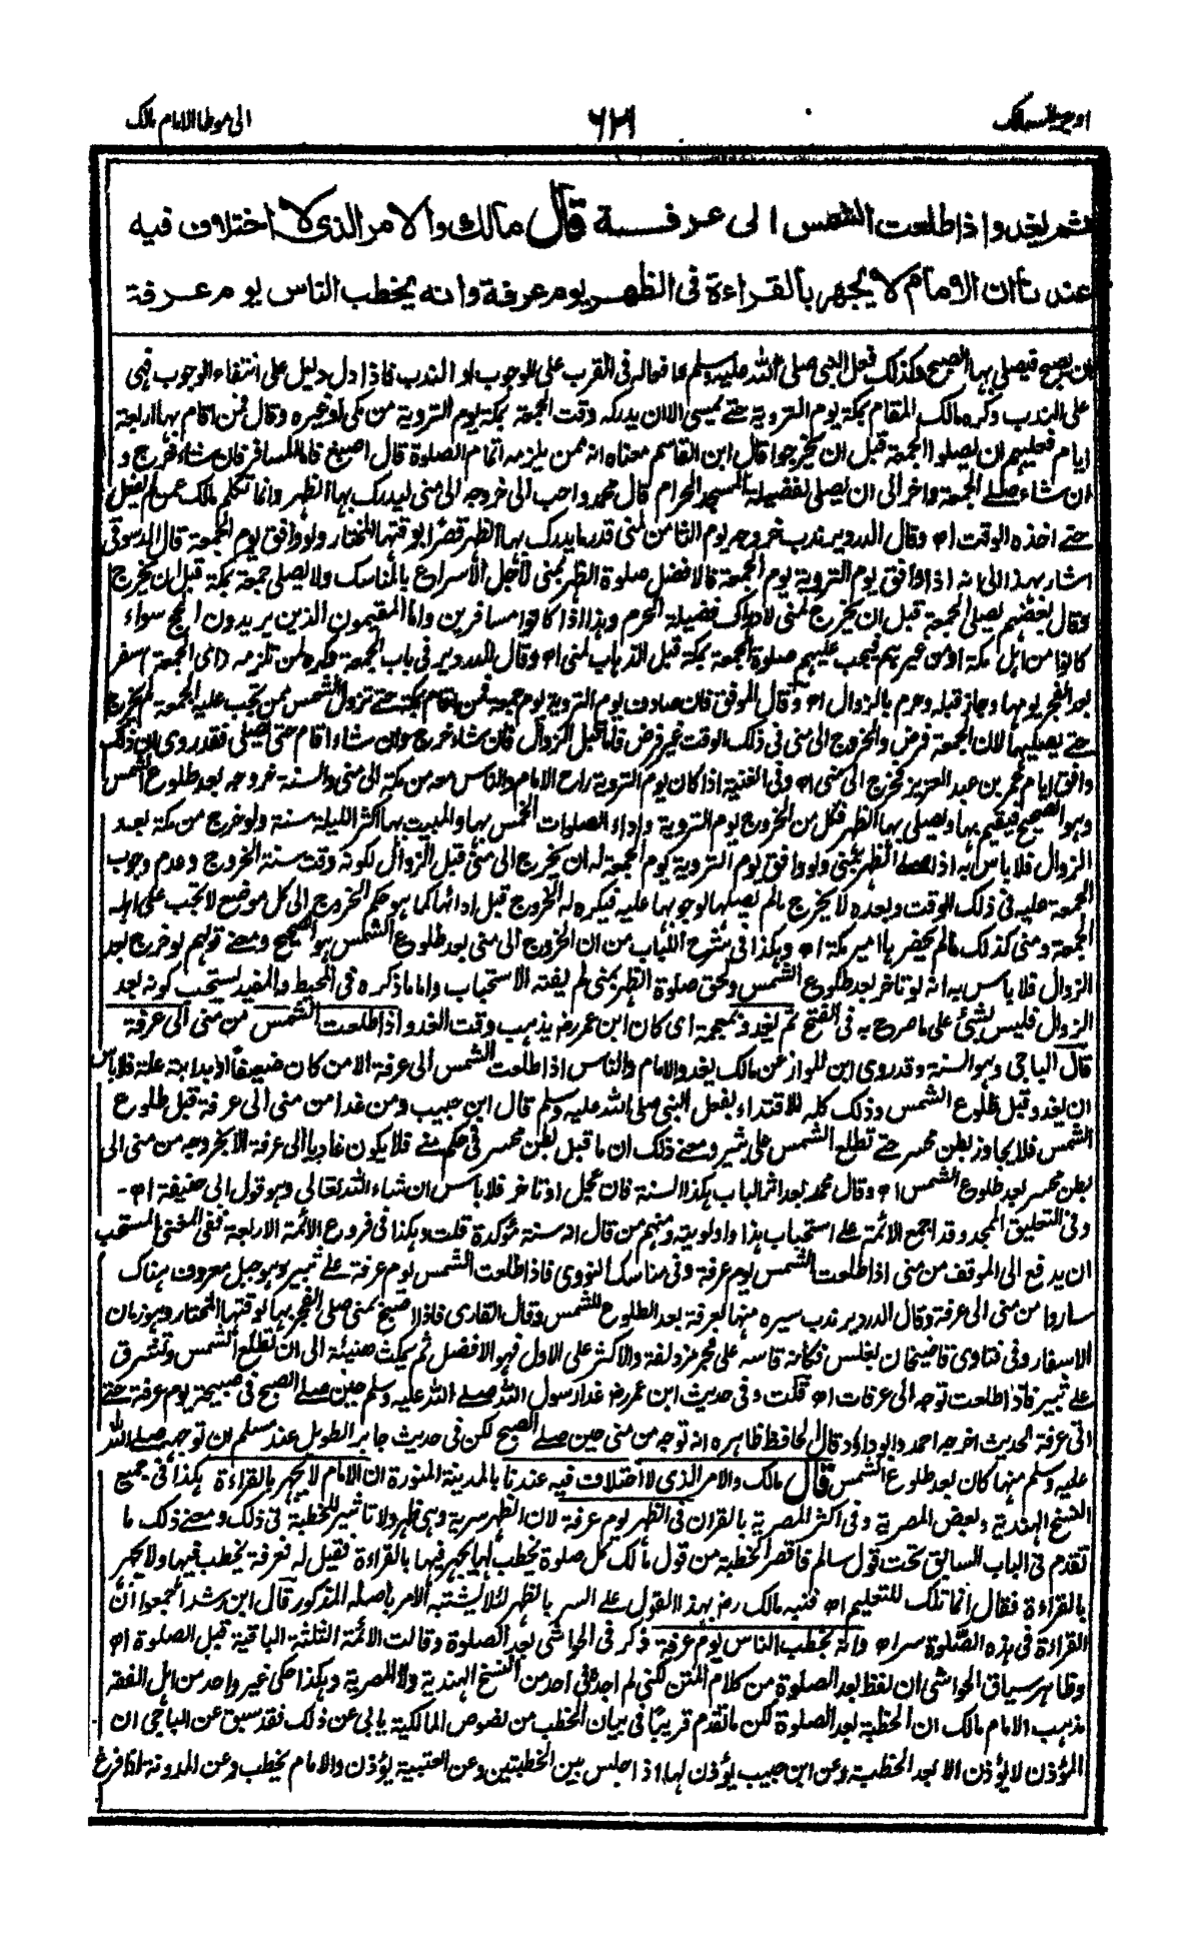 اوجز المسالك
٦٢١
الى موطا الامام مالك
ثم يغدو اذا طلعت الشمس الى عرفة قال مالك والامر الذى لا اختلاف فيه
عندنا ان الامام لا يجهر بالقراءة فى الظهر يوم عرفة وانه يخطب الناس يوم عرفة
ان يصبح فيصلى بها الصبح وكذلك فعل النبى صلى الله عليه وسلم فافعاله فى القرب على الوجوب او الندب فاذا دل دليل على انتفاء الوجوب فهى
على الندب وكره مالك المقام بمكة يوم التروية حتى يمسى الا ان يدركه وقت الجمعة بمكة يوم التروية من مكى او غيره وقال فمن اقام بها اربعة
ايام فعليهم ان يصلوا الجمعة قبل ان يخرجوا قال ابن القاسم معناه انه ممن يلزمه اتمام الصلوة قال اصبغ فاما المسافر فان شاء خرج و
ان شاء صلى الجمعة واخر الى ان يصلى لفضيلة المسجد الحرام قال محمد واحب الى خروجه الى منى ليدرك بها الظهر وانما تكلم مالك عمن لم يفعل
حتى اخذه الوقت اه وقال الدردير ندب خروجه يوم الثامن لمنى قدر ما يدرك بها الظهر قصرا بوقتها المختار ولو وافق يوم الجمعة قال الدسوقى
اشار بهذا الى انه اذا وافق يوم التروية يوم الجمعة فالافضل صلوة الظهر بمنى لاجل الاسراع بالمناسك ولا يصلى جمعة بمكة قبل ان يخرج
وقال بعضهم يصلى الجمعة قبل ان يخرج لمنى لادراك فضيلة الحرم وهذا اذا كانوا مسافرين واما المقيمون الذين يريدون الحج سواء
كانوا من اهل مكة او من غيرهم فيجب عليهم صلوة الجمعة بمكة قبل الذهاب لمنى اه وقال الدردير فى باب الجمعة وكره لمن تلزمه داى الجمعة سفر
بعد الفجر يومها وجاز قبله وحرم بالزوال اه وقال الموفق فان صادف يوم التروية يوم جمعة فمن اقام بمكة حتى تزول الشمس ممن تجب عليه الجمعة لم يخرج
حتى يصليها لان الجمعة فرض والخروج الى منى فى ذلك الوقت غير فرض فاما قبل الزوال فان شاء خرج وان شاء اقام حتى يصلى فقد روى ان ذلك
وافق ايام عمر بن عبد العزيز فخرج الى منى اه وفى الغنية اذا كان يوم التروية راح الامام والناس معه من مكة الى منى والسنة خروجه بعد طلوع الشمس
وهو الصحيح فيقيم بها ويصلى بها الظهر فكل من الخروج يوم التروية واداء الصلوات الخمس بها والمبيت بها اكثر الليلة سنة ولو خرج من مكة بعد
الزوال فلا باس به اذا صلى الظهر بمنى ولو وافق يوم التروية يوم الجمعة له ان يخرج الى منى قبل الزوال لكونه وقت سنة الخروج وعدم وجوب
الجمعة عليه فى ذلك الوقت وبعده لا يخرج مالم يصلها لوجوبها عليه فيكره له الخروج قبل ادائها كما هو حكم الخروج الى كل موضع لا تجب على اهله
الجمعة ومنى كذلك مالم يحضر بها امير مكة اه وهكذا فى شرح اللباب من ان الخروج الى منى بعد طلوع الشمس هو الصحيح ومعنى قولهم لو خرج بعد
الزوال فلا باس به انه لو تاخر بعد طلوع الشمس ولحق صلوة الظهر بمنى لم يفته الاستحباب واما ما ذكره فى المحيط والمفيد يستحب كونه بعد
الزوال فليس بشئ على ما صرح به فى الفتح ثم يغدو بمعجمة اى كان ابن عمر رض يذهب وقت الغدو اذا طلعت الشمس من منى الى عرفة
قال الباجى وهو السنة وقد روى ابن المواز عن مالك يغدو الامام والناس اذا طلعت الشمس الى عرفة الا من كان ضعيفا او بدابته علة فلا باس
ان يغدو قبل طلوع الشمس وذلك كله للاقتداء بفعل النبى صلى الله عليه وسلم قال ابن حبيب ومن غدا من منى الى عرفة قبل طلوع
الشمس فلا يجاوز بطن محسر حتى تطلع الشمس على ثبير ومعنى ذلك ان ما قبل بطن محسر فى حكم منى فلا يكون غاديا الى عرفة الا بخروجه من منى الى
بطن محسر بعد طلوع الشمس اه وقال محمد بعد اثر الباب هكذا السنة فان عجل او تاخر فلا باس ان شاء الله تعالى وهو قول ابى حنيفة اه -
وفى التعليق الممجد وقد اجمع الائمة على استحباب هذا واولويته ومنهم من قال انه سنة مؤكدة قلت وهكذا فى فروع الائمة الاربعة ففى المغنى المستحب
ان يدفع الى الموقف من منى اذا طلعت الشمس يوم عرفة وفى مناسك النووى فاذا طلعت الشمس يوم عرفة على ثبير وهو جبل معروف هناك
ساروا من منى الى عرفة وقال الدردير ندب سيره منها لعرفة بعد الطلوع للشمس وقال القارى فاذا اصبح بمنى صلى الفجر بها لوقتها المختار وهو زمان
الاسفار وفى فتاوى قاضيخان بغلس فكانه قاسه على فجر مزدلفة والاكثر على الاول فهو الافضل ثم يمكث هنيئة الى ان تطلع الشمس وتشرق
على ثبير فاذا طلعت توجه الى عرفات اه قلت وفى حديث ابن عمر رض غدا رسول الله صلى الله عليه وسلم حين صلى الصبح فى صبيحة يوم عرفة حتى
اتى عرفة الحديث اخرجه احمد وابو داؤد قال الحافظ ظاهره انه توجه من منى حين صلى الصبح لكن فى حديث جابر الطويل عند مسلم ان توجهه صلى الله
عليه وسلم منها كان بعد طلوع الشمس قال مالك والامر الذى لا اختلاف فيه عندنا بالمدينة المنورة ان الامام لا يجهر بالقراءة هكذا فى جميع
النسخ الهندية وبعض المصرية وفى اكثر المصرية بالقران فى الظهر يوم عرفة لان الظهر سرية وهى ظهر ولا تاثير للخطبة فى ذلك ومعنى ذلك ما
تقدم فى الباب السابق تحت قول سالم فاقصر الخطبة من قول مالك كل صلوة يخطب لها يجهر فيها بالقراءة فقيل له فعرفة يخطب فيها ولا يجهر
بالقراءة فقال انما تلك للتعليم اه فنبه مالك رض بهذا القول على السر بالظهر لئلا يشتبه الامر باصله المذكور قال ابن رشد اجمعوا ان
القراءة فى هذه الصلوة سر اه وانه يخطب الناس يوم عرفة ذكر فى الحواشى بعد الصلوة وقالت الائمة الثلثة الباقية قبل الصلوة اه
وظاهر سياق الحواشى ان لفظ بعد الصلوة من كلام المتن لكنى لم اجده فى احد من النسخ الهندية ولا المصرية وهكذا حكى غير واحد من اهل الفقه
مذهب الامام مالك ان الخطبة بعد الصلوة لكن ما تقدم قريبا فى بيان الخطب من نصوص المالكية يابى عن ذلك فقد سبق عن الباجى ان
المؤذن لا يؤذن الا بعد الخطبة وعن ابن حبيب يؤذن لها اذا جلس بين الخطبتين وعن العتبية يؤذن والامام يخطب وعن المدونة اذا فرغ